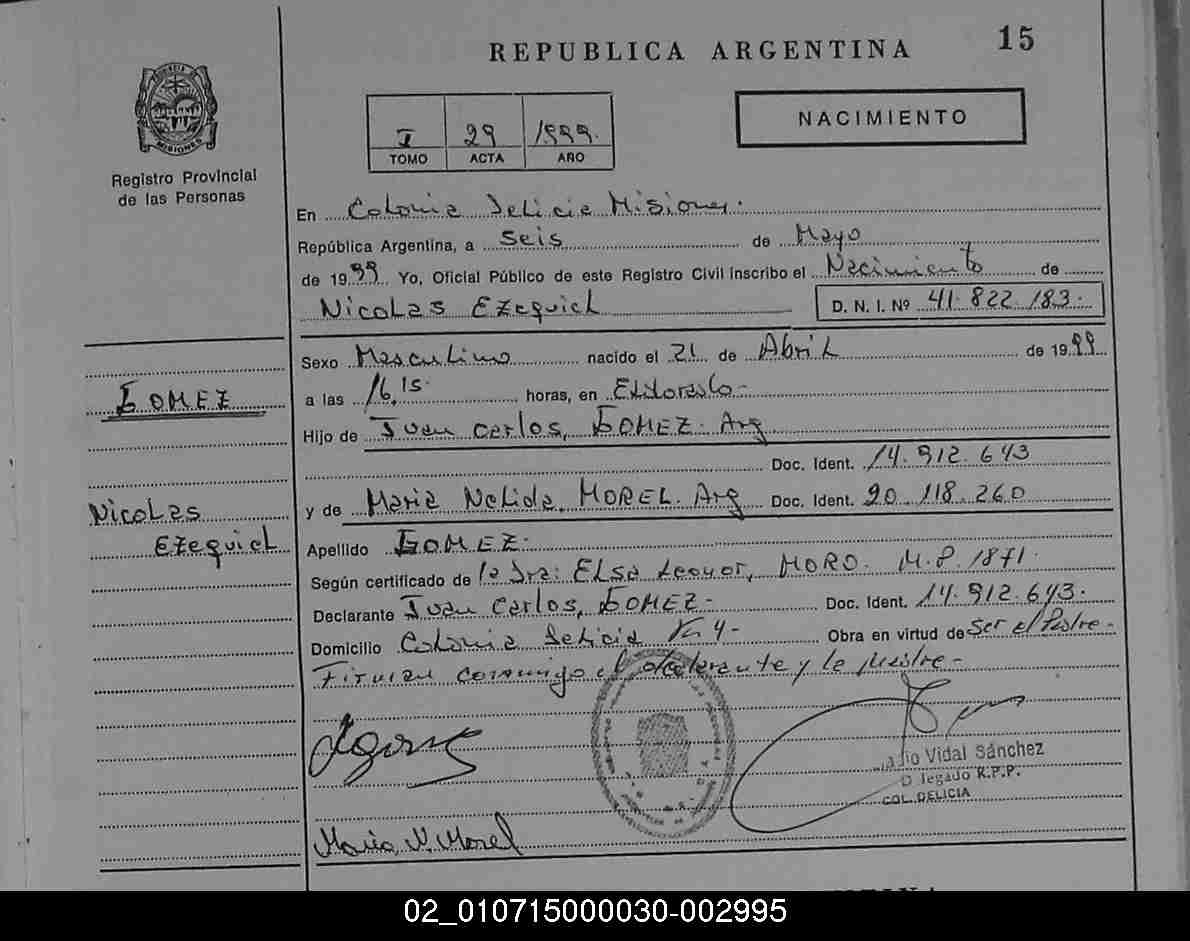 REPUBLICA ARGENTINA
15
PROVINCIA DE
MISIONES
Registro Provincial
de las Personas
I 29 1999.
TOMO ACTA AÑO
NACIMIENTO
En Colonia Delicia Misiones.
República Argentina, a seis de Mayo
de 1999 Yo, Oficial Público de este Registro Civil inscribo el Nacimiento de
Nicolas Ezequiel D. N. I. Nº 41.822.183.
Sexo Masculino nacido el 21 de Abril de 1999
GOMEZ
a las 16,15. horas, en Eldorado-
Hijo de Juan Carlos, GOMEZ. Arg
Doc. Ident. 14.912.643
Nicolas
Ezequiel
y de Maria Nelida, MOREL. Arg Doc. Ident. 20.118.260
Apellido GOMEZ-
Según certificado de la Dra: ELSA Leonor, MORO. M.P. 1871.
Declarante Juan Carlos, GOMEZ- Doc. Ident. 14.912.643.
Domicilio Colonia Delicia Km 4- Obra en virtud de Ser el Padre-
Firman conmigo el declarante y la Madre-
Vidal Sánchez
legado R.P.P.
COL. DELICIA
Maria N. Morel
02_010715000030-002995